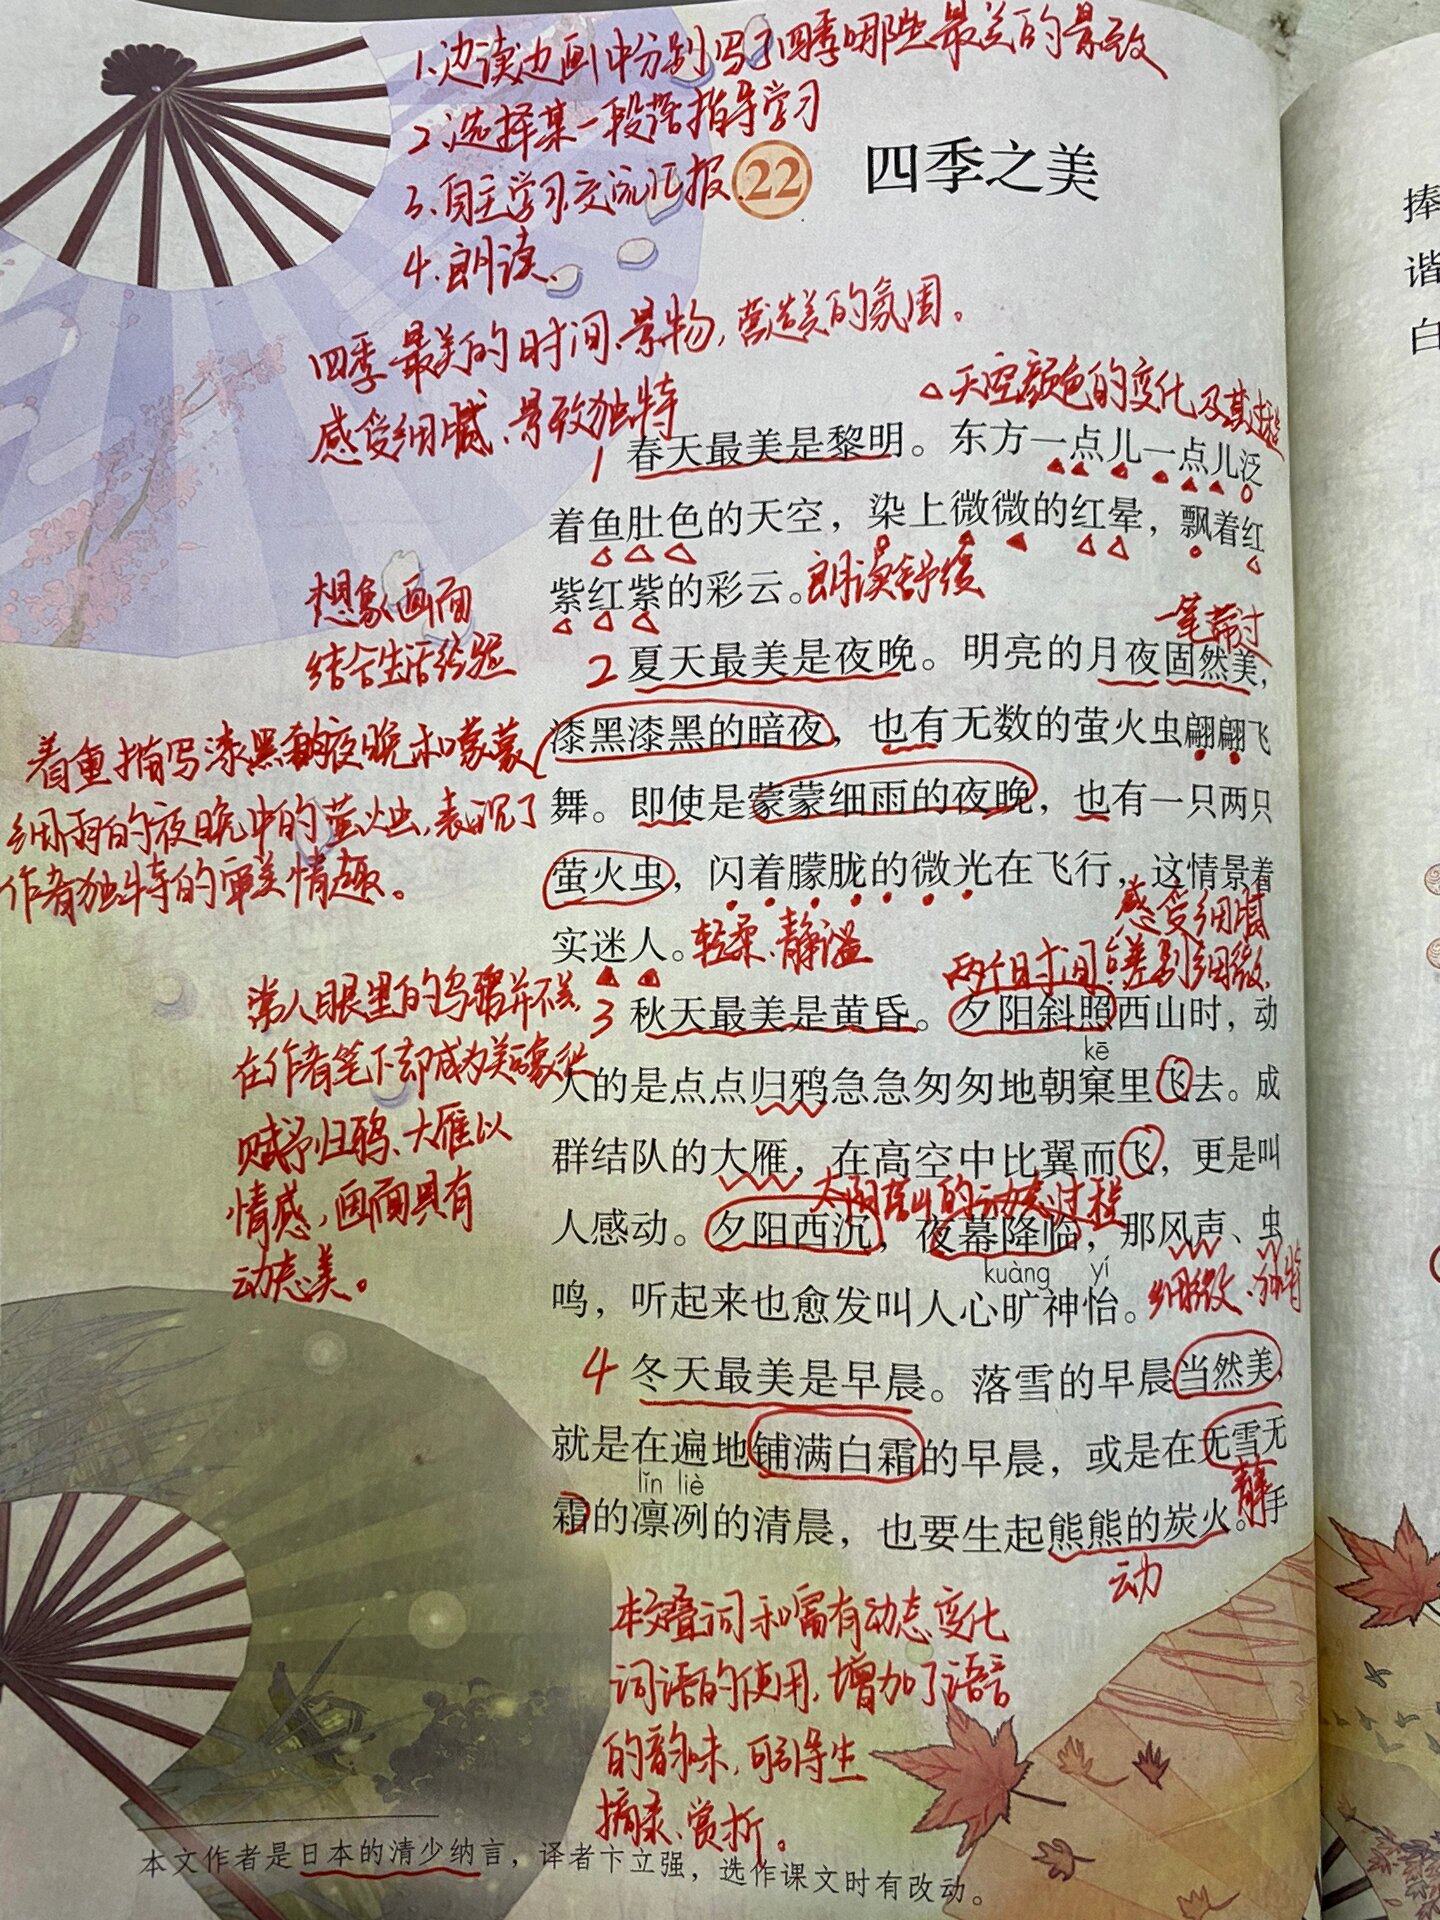 1、边读边画中分别写了四季哪些最美的景致
2、选择某一段落指导学习
3、自主学习、交流汇报
4、朗读、
22 四季之美
四季最美的时间、景物,营造美的氛围。
感受细腻、景致独特
△天空颜色的变化及其过程
1 春天最美是黎明。东方一点儿一点儿泛
着鱼肚色的天空，染上微微的红晕，飘着红
紫红紫的彩云。朗读舒缓
想象画面
结合生活经验
一笔带过
2 夏天最美是夜晚。明亮的月夜固然美，
漆黑漆黑的暗夜，也有无数的萤火虫翩翩飞
舞。即使是蒙蒙细雨的夜晚，也有一只两只
萤火虫，闪着朦胧的微光在飞行，这情景着
实迷人。轻柔、静谧
着重描写漆黑的夜晚和蒙蒙
细雨的夜晚中的萤火虫,表现了
作者独特的审美情趣。
感受细腻
两个时间点差别细微
3 秋天最美是黄昏。夕阳斜照西山时，动
kē
人的是点点归鸦急急匆匆地朝窠里飞去。成
群结队的大雁，在高空中比翼而飞，更是叫
太阳落山的动态过程
人感动。夕阳西沉，夜幕降临，那风声、虫
kuàng yí
鸣，听起来也愈发叫人心旷神怡。细微、独特
常人眼里的乌鸦并不美
在作者笔下却成为美的象征
赋予归鸦、大雁以
情感,画面具有
动态美。
4 冬天最美是早晨。落雪的早晨当然美，
就是在遍地铺满白霜的早晨，或是在无雪无
lǐn liè
静
霜的凛冽的清晨，也要生起熊熊的炭火。手
动
本文叠词和富有动态变化
词语的使用,增加了语言
的韵味,可引导生
摘录、赏析。
本文作者是日本的清少纳言，译者卞立强，选作课文时有改动。
捧
谐
白